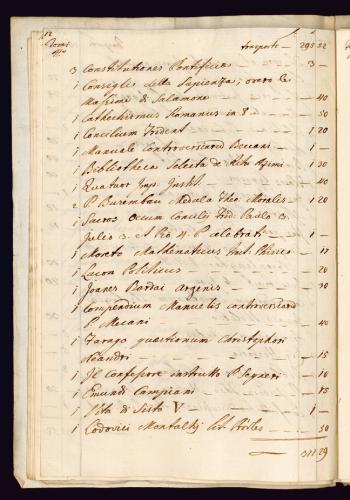 12
Tomi
trasporto — 295 52
3 Constitutiones Pontificie — 3 —
1 Consiglj della Sapienza, overo le
Massime di Salamone — 40
1 Cathechismus Romanus in 8 — 50
1 Concilium Trident — 1 20
1 Manuale Controversiarum Becani — 1 —
1 Bibliotheca Selecta de — 1 30
1 Quatuor Imp. Justi. — 40
2 P. Burembau Medula Theo. Moralis — 1 20
1 Sacros Ecum Concilij Trid. Paolo 3.
Julio 3. et Pio 4. P. celebrati — 1 —
1 Moreto Mathematicus — 17
1 Lacon Politicus — 20
1 Joanes Barclai Argenis — 30
1 Compendium Manuelis controversiarum
P. Becani — 40
1 Farago questionum Christophori
Leandri — 15
1 Il Confessore instrutto P. Segneri — 10
1 Emundi Campiani — 15
1 Vita di Sisto V — 1 —
1 Lodovici Montaltij — 50
311 29